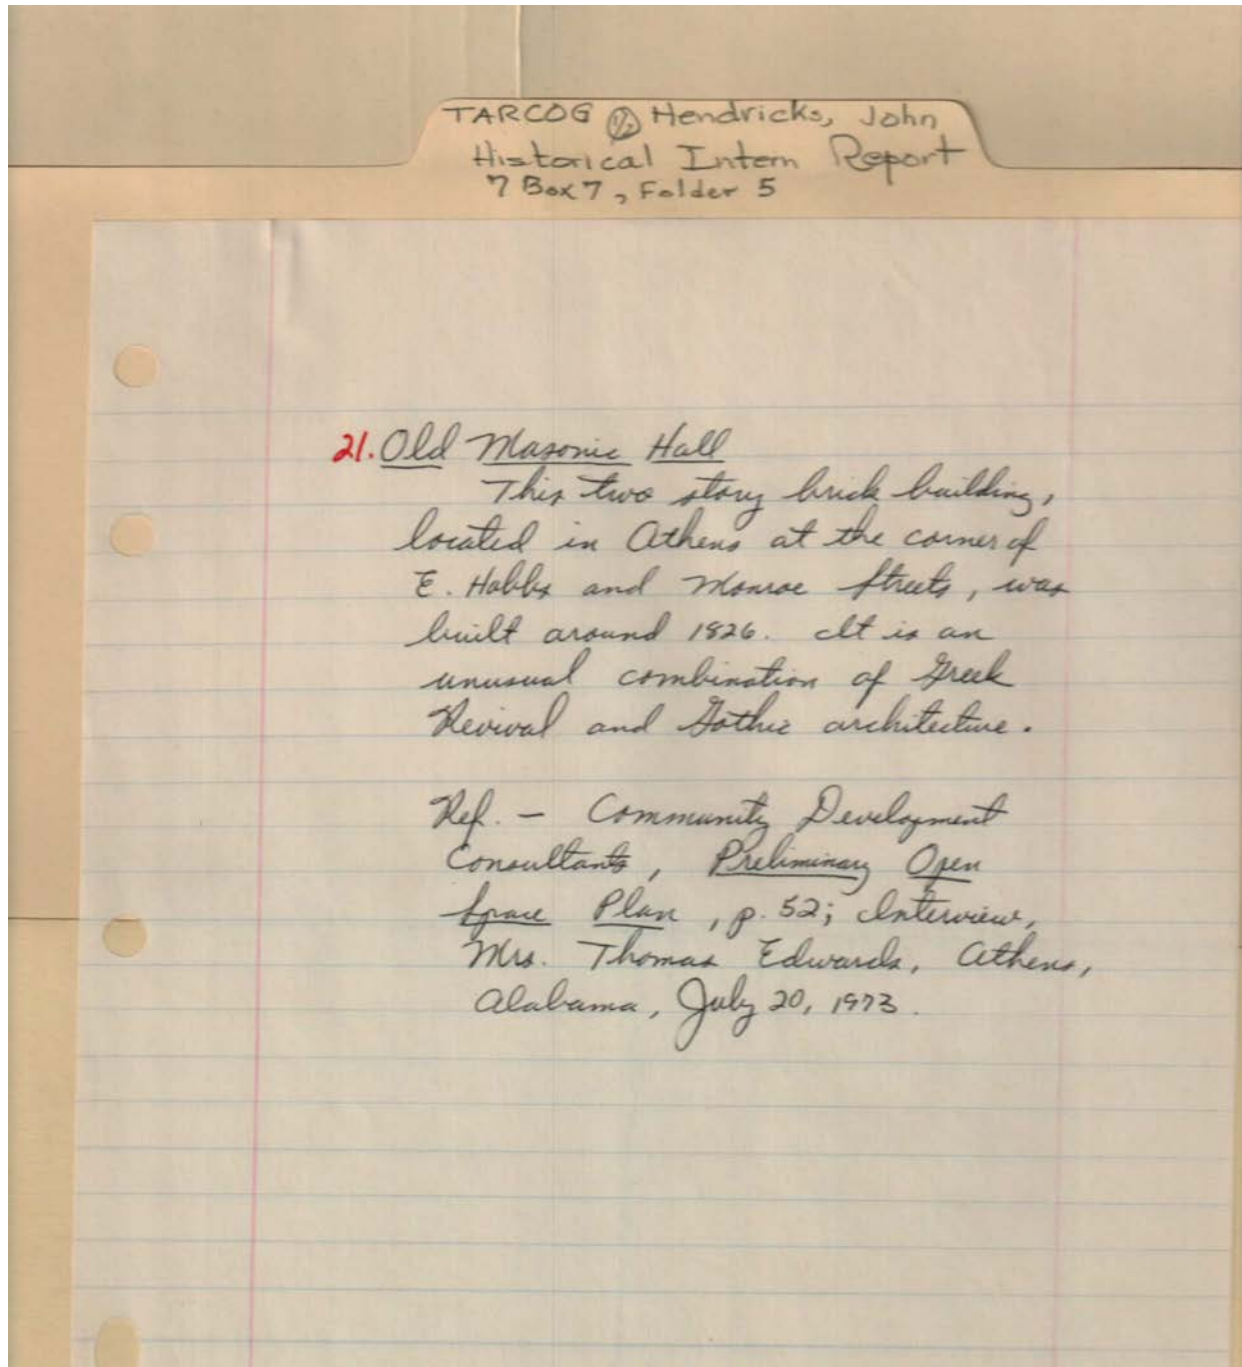 TARCOG 1/2 Hendricks, John
Historical Intern Report
7 Box 7, Folder 5
21. Old Masonic Hall
This two story brick building,
located in Athens at the corner of
E. Hobbs and Monroe Streets, was
built around 1826. It is an
unusual combination of Greek
Revival and Gothic architecture.
Ref. - Community Development
Consultants, Preliminary Open
Space Plan, p. 52; Interview,
Mrs. Thomas Edwards, Athens,
Alabama, July 20, 1973.